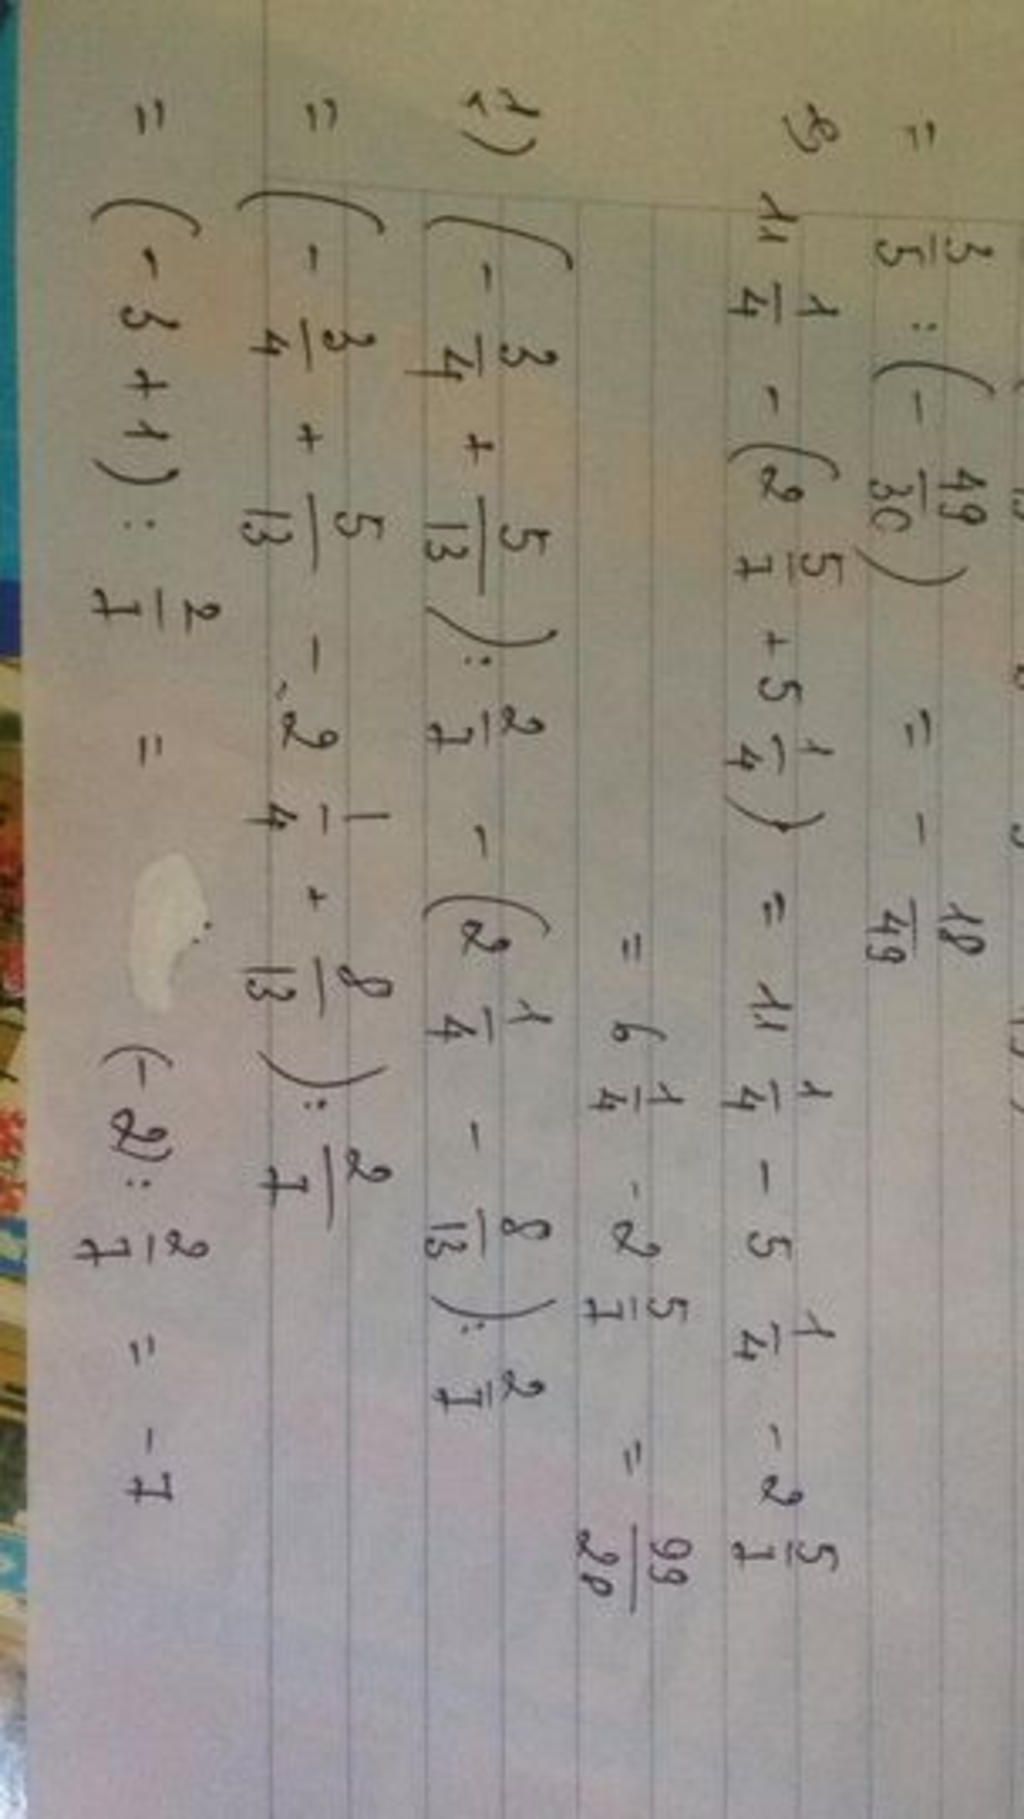 = 3/5 : (- 49/30) = - 18/49
11 1/4 - (2 5/7 + 5 1/4) = 11 1/4 - 5 1/4 - 2 5/7
= 6 1/4 - 2 5/7 = 99/28
(- 3/4 + 5/13) : 2/7 - (2 1/4 - 8/13) : 2/7
= (- 3/4 + 5/13 - 2 1/4 + 8/13) : 2/7
= (-3 + 1) : 2/7 = (-2) : 2/7 = -7